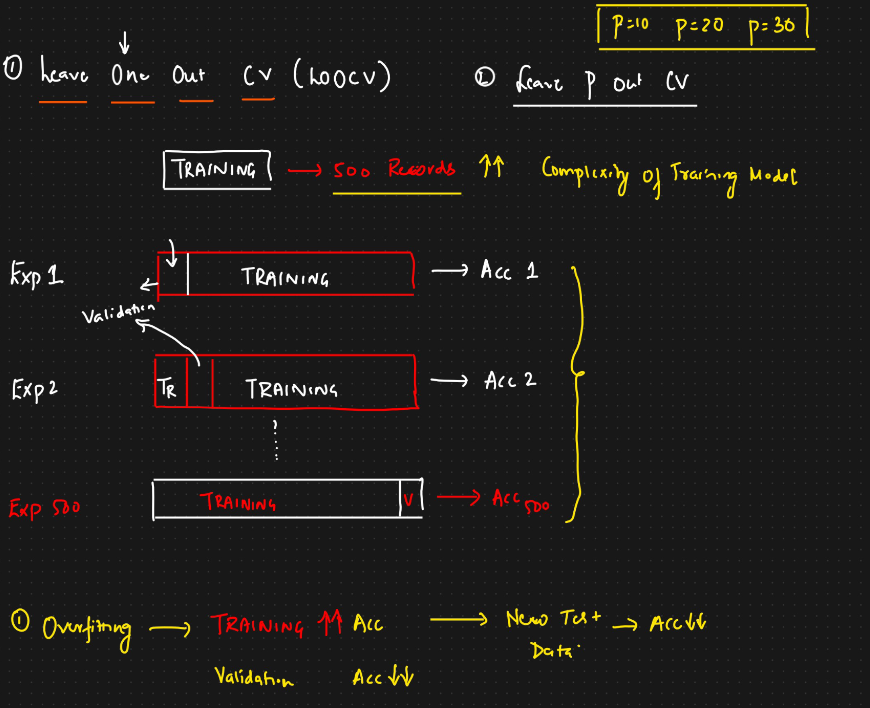 P=10 P=20 P=30
① Leave One Out CV (LOOCV)
② Leave P Out CV
TRAINING → 500 Records ↑↑ Complexity of Training Model
Exp 1 TRAINING → Acc 1
Validation
Exp 2 TR TRAINING → Acc 2
Exp 500 TRAINING V → Acc 500
① Overfitting → TRAINING ↑↑ Acc → New Test Data → Acc ↓↓
Validation Acc ↓↓